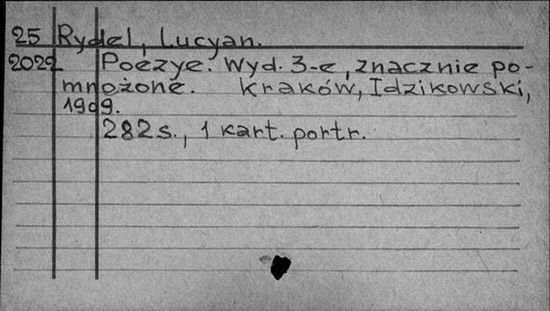 25 Rydel, Lucyan.
2022 Poezye. Wyd. 3-e, znacznie po-
mnożone. Kraków, Idzikowski,
1909.
282 s., 1 kart. portr.